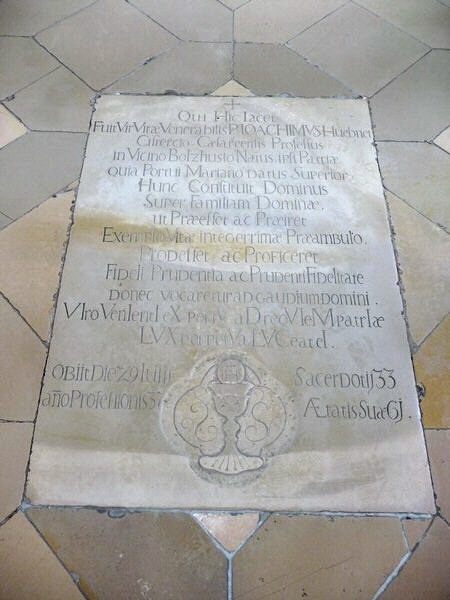 Qui Hic Iacet
Fuit Vir Vitæ Venerabilis P. IOACHIMVS Huebner
Cisterciò Cæsareensis Professus
in Vicino Bolzhusio Natus ipsi Patriæ
quia Portui Mariano datus Superior,
Hunc Constituit Dominus
Super familiam Dominæ,
ut Præesset ac Præiret
Exemplo Vitæ integerrimæ Præambulo.
Prodesset ac Proficeret
Fideli Prudentia ac Prudenti Fidelitate
donec vocaretur ad gaudium domini.
VIro VenIentI eX portV
patrIæ
LVX perpetVa LVCeat eI.
Obiit Die 29 Iulij
Sacerdotij 33
año Professionis
Ætatis Suæ 61